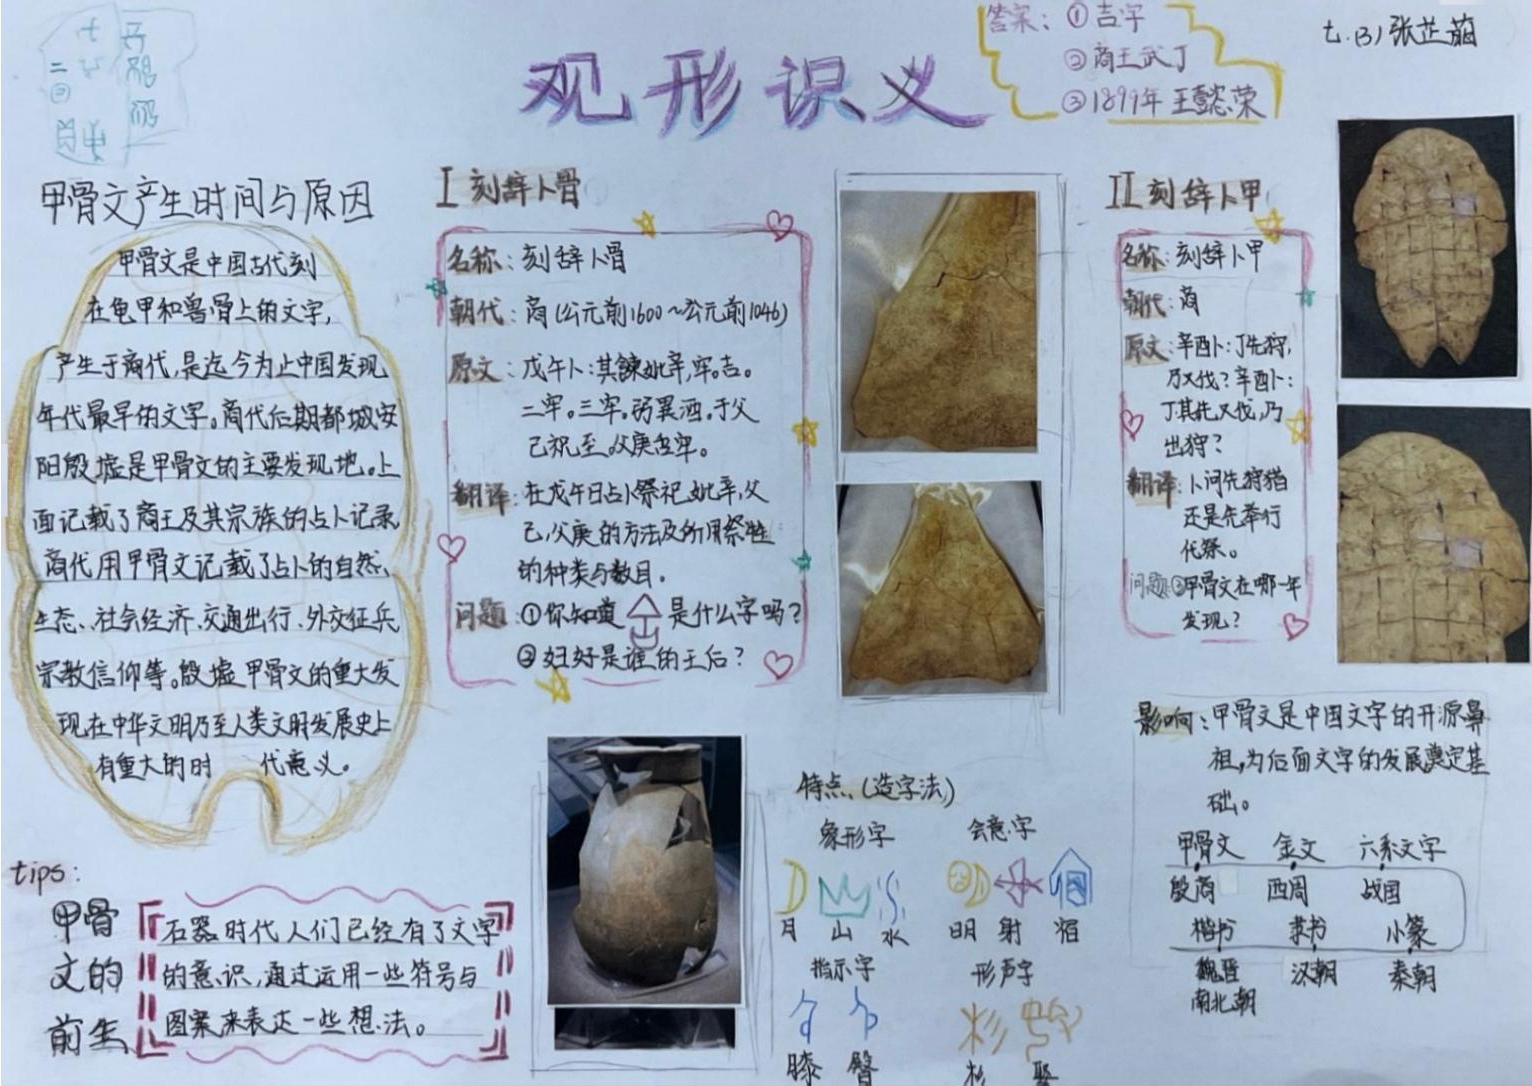 观形识义
答案：①吉字
②商王武丁
③1899年 王懿荣
七.(3)张芷菡
甲骨文产生时间与原因
甲骨文是中国古代刻
在龟甲和兽骨上的文字，
产生于商代，是迄今为止中国发现
年代最早的文字。商代后期都城安
阳殷墟是甲骨文的主要发现地。上
面记载了商王及其宗族的占卜记录
商代用甲骨文记载了占卜的自然、
生态、社会经济、交通出行、外交征兵
宗教信仰等。殷墟甲骨文的重大发
现在中华文明乃至人类文明发展史上
有重大的时 代意义。
I 刻辞卜骨
名称：刻辞卜骨
朝代：商(公元前1600~公元前1046)
原文：戊午卜：其餗妣辛，牢。吉。
二牢。三牢。弜異酒。于父
己祝，至。父庚牢。
翻译：在戊午日占卜祭祀妣辛，父
己，父庚的方法及所用祭牲
的种类与数目。
问题：①你知道 是什么字吗？
②妇好是谁的王后？
II 刻辞卜甲
名称：刻辞卜甲
朝代：商
原文：辛酉卜：丁先狩，
乃又伐？辛酉卜：
丁其先又伐，乃
出狩？
翻译：卜问先狩猎
还是先举行
伐祭。
问题：③甲骨文在哪一年
发现？
影响：甲骨文是中国文字的开源鼻
祖，为后面文字的发展奠定基
础。
甲骨文 金文 六系文字
殷商 西周 战国
楷书 隶书 小篆
魏晋 汉朝 秦朝
南北朝
特点(造字法)
象形字 会意字
月 山 水 明 射 宿
指示字 形声字
膝 臀 杉 娶
tips:
甲骨
文的
前生
石器时代人们已经有了文字
的意识，通过运用一些符号与
图案来表达一些想法。